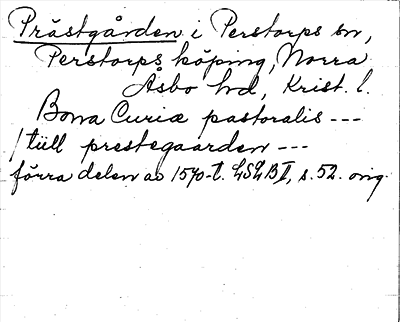 Prästgården i Perstorps sn,
Perstorps köping, Norra
Åsbo hd, Krist. l.
Bona Curiæ pastoralis ---
/ tiill prestegaarden ---
förra delen av 1570-t. LSLB II, s. 52. orig.